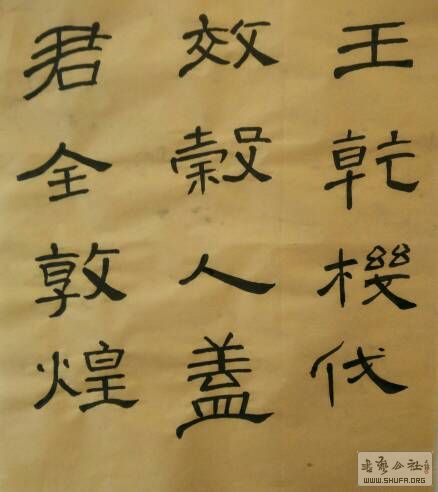 君全敦煌
效穀人盖
王乾機伐
书艺公社
WWW.SHUFA.ORG